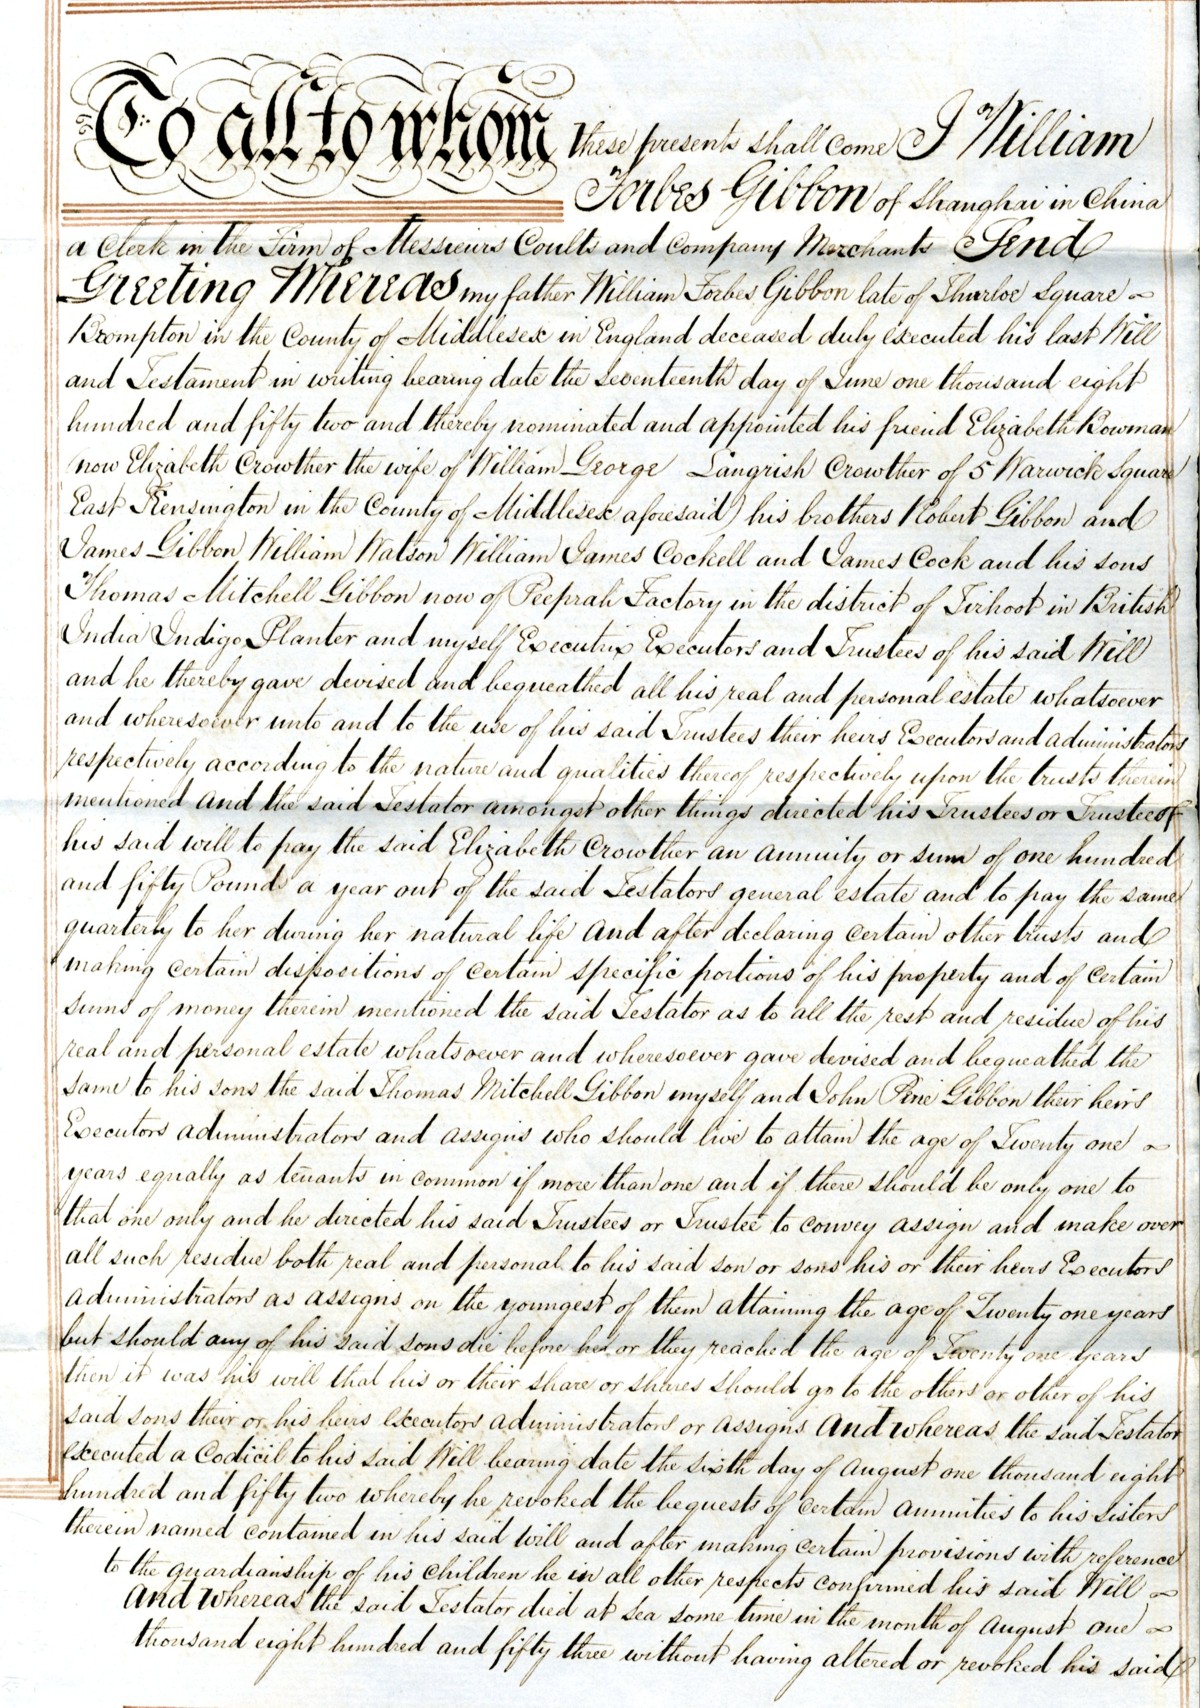 To all to whom these presents shall come I William
Forbes Gibbon of Shanghai in China
a Clerk in the Firm of Messieurs Coutts and Company Merchants Send
Greeting Whereas my father William Forbes Gibbon late of Thurloe Square
Brompton in the County of Middlesex in England deceased duly executed his last Will
and Testament in writing bearing date the seventeenth day of June one thousand eight
hundred and fifty two and thereby nominated and appointed his friend Elizabeth Bowman
(now Elizabeth Crowther the wife of William George Langrish Crowther of 5 Warwick Square
East Kensington in the County of Middlesex aforesaid) his brothers Robert Gibbon and
James Gibbon William Watson William James Cockell and James Cock and his sons
Thomas Mitchell Gibbon now of Peeprah Factory in the district of Tirhoot in British
India Indigo Planter and myself Executrix Executors and Trustees of his said Will
and he thereby gave devised and bequeathed all his real and personal estate whatsoever
and wheresoever unto and to the use of his said Trustees their heirs Executors and administrators
respectively according to the nature and qualities thereof respectively upon the trusts therein
mentioned and the said Testator amongst other things directed his Trustees or Trustee of
his said will to pay the said Elizabeth Crowther an annuity or sum of one hundred
and fifty Pounds a year out of the said Testators general estate and to pay the same
quarterly to her during her natural life and after declaring certain other trusts and
making certain dispositions of certain specific portions of his property and of certain
sums of money therein mentioned the said Testator as to all the rest and residue of his
real and personal estate whatsoever and wheresoever gave devised and bequeathed the
same to his sons the said Thomas Mitchell Gibbon myself and John Pine Gibbon their heirs
Executors administrators and assigns who should live to attain the age of Twenty one
years equally as tenants in common if more than one and if there should be only one to
that one only and he directed his said Trustees or Trustee to convey assign and make over
all such residue both real and personal to his said son or sons his or their heirs Executors
administrators as assigns on the youngest of them attaining the age of Twenty one years
but should any of his said sons die before he or they reached the age of Twenty one years
then it was his will that his or their share or shares should go to the others or other of his
said sons their or his heirs executors administrators or assigns and whereas the said Testator
executed a Codicil to his said Will bearing date the sixth day of August one thousand eight
hundred and fifty two whereby he revoked the bequests of certain annuities to his sisters
therein named contained in his said will and after making certain provisions with reference
to the guardianship of his children he in all other respects confirmed his said Will
and whereas the said Testator died at sea some time in the month of August one
thousand eight hundred and fifty three without having altered or revoked his said